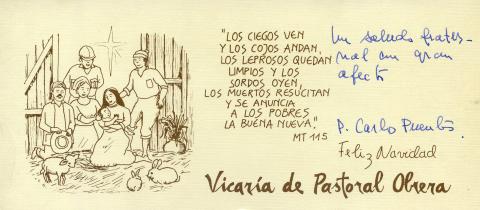 "LOS CIEGOS VEN
Y LOS COJOS ANDAN,
LOS LEPROSOS QUEDAN
LIMPIOS Y LOS
SORDOS OYEN,
LOS MUERTOS RESUCITAN
Y SE ANUNCIA
A LOS POBRES
LA BUENA NUEVA."
MT 11 5
Un saludo frater-
nal con gran
afecto
P. Carlo
Feliz Navidad
Vicaría de Pastoral Obrera